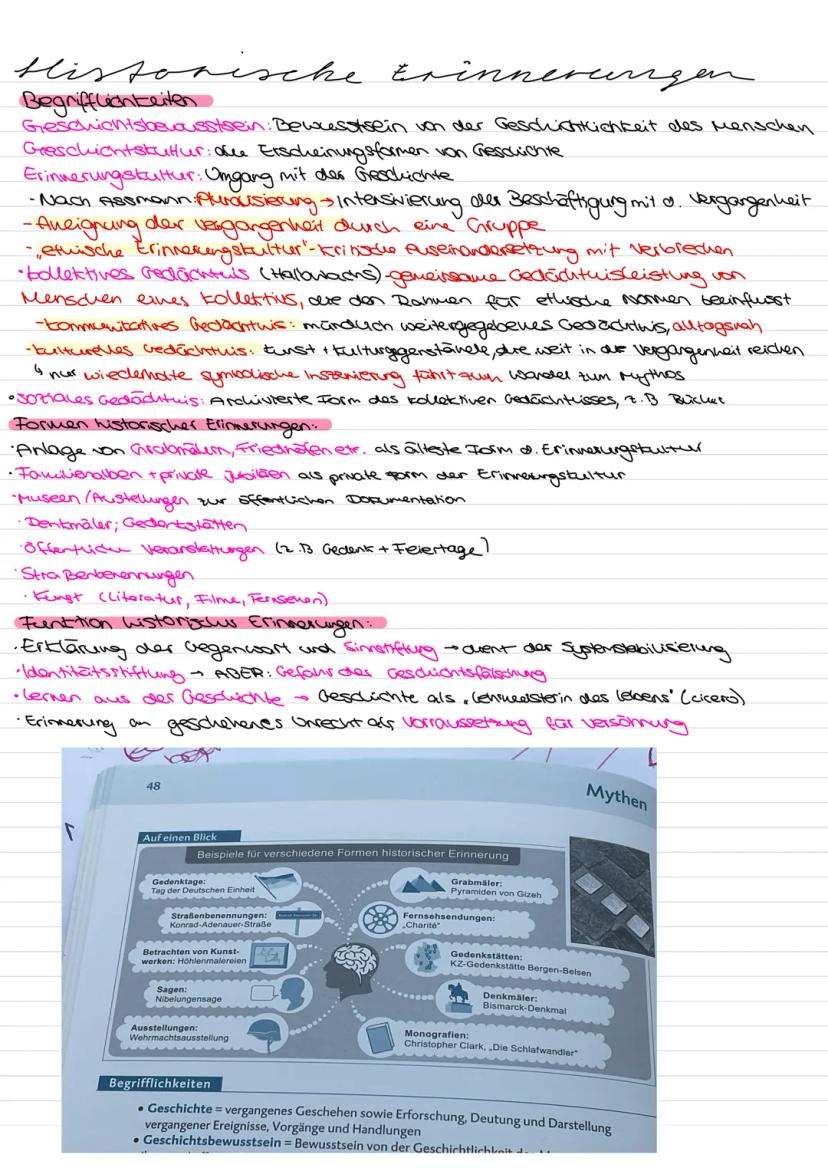 Historische Erinnerungen
Begrifflichkeiten
Geschichtsbewusstsein: Bewusstsein von der Geschichtlichkeit des Menschen
Geschichtskultur: alle Erscheinungsformen von Geschichte
Erinnerungskultur: Umgang mit der Geschichte
- Nach Assmann: Pluralisierung → Intensivierung der Beschäftigung mit d. Vergangenheit
- Aneignung der Vergangenheit durch eine Gruppe
- „ethische Erinnerungskultur" - kritische Auseinandersetzung mit Verbrechen
· kollektives Gedächtnis (Halbwachs) - gemeinsame Gedächtnisleistung von
Menschen eines Kollektivs, die den Rahmen für ethische Normen beeinflusst
- kommunikatives Gedächtnis: mündlich weitergegebenes Gedächtnis, alltagsnah
- kulturelles Gedächtnis: Kunst + Kulturgegenstände, die weit in die Vergangenheit reichen
↳ nur wiederholte symbolische Inszenierung führt zum Wandel zum Mythos
• soziales Gedächtnis: Archivierte Form des kollektiven Gedächtnisses, z.B Bücher
Formen historischer Erinnerungen:
· Anlage von Grabmälern, Friedhöfen etr. als älteste Form d. Erinnerungskultur
· Familienalben + private Jubiläen als private Form der Erinnerungskultur
· Museen / Austellungen zur öffentlichen Dokumentation
· Denkmäler; Gedenkstätten
· öffentliche Veranstaltungen (z.B Gedenk + Feiertage)
· Straßenbenennungen
· Kunst (Literatur, Filme, Fernsehen)
Funktion historischer Erinnerungen:
· Erklärung der Gegenwart und Sinnstiftung → dient der Systemstabilisierung
· Identitätsstiftung → ABER: Gefahr der Geschichtsfälschung
• Lernen aus der Geschichte → Geschichte als „Lehrmeisterin des Lebens" (Cicero)
· Erinnerung an geschehenes Unrecht als Vorraussetzung für Versöhnung
48
Mythen
Auf einen Blick
Beispiele für verschiedene Formen historischer Erinnerung
Gedenktage:
Tag der Deutschen Einheit
Grabmäler:
Pyramiden von Gizeh
Straßenbenennungen:
Konrad-Adenauer-Straße
Fernsehsendungen:
„Charité"
Betrachten von Kunst-
werken: Höhlenmalereien
Gedenkstätten:
KZ-Gedenkstätte Bergen-Belsen
Sagen:
Nibelungensage
Denkmäler:
Bismarck-Denkmal
Ausstellungen:
Wehrmachtsausstellung
Monografien:
Christopher Clark, „Die Schlafwandler"
Begrifflichkeiten
• Geschichte = vergangenes Geschehen sowie Erforschung, Deutung und Darstellung
vergangener Ereignisse, Vorgänge und Handlungen
• Geschichtsbewusstsein = Bewusstsein von der Geschichtlichkeit